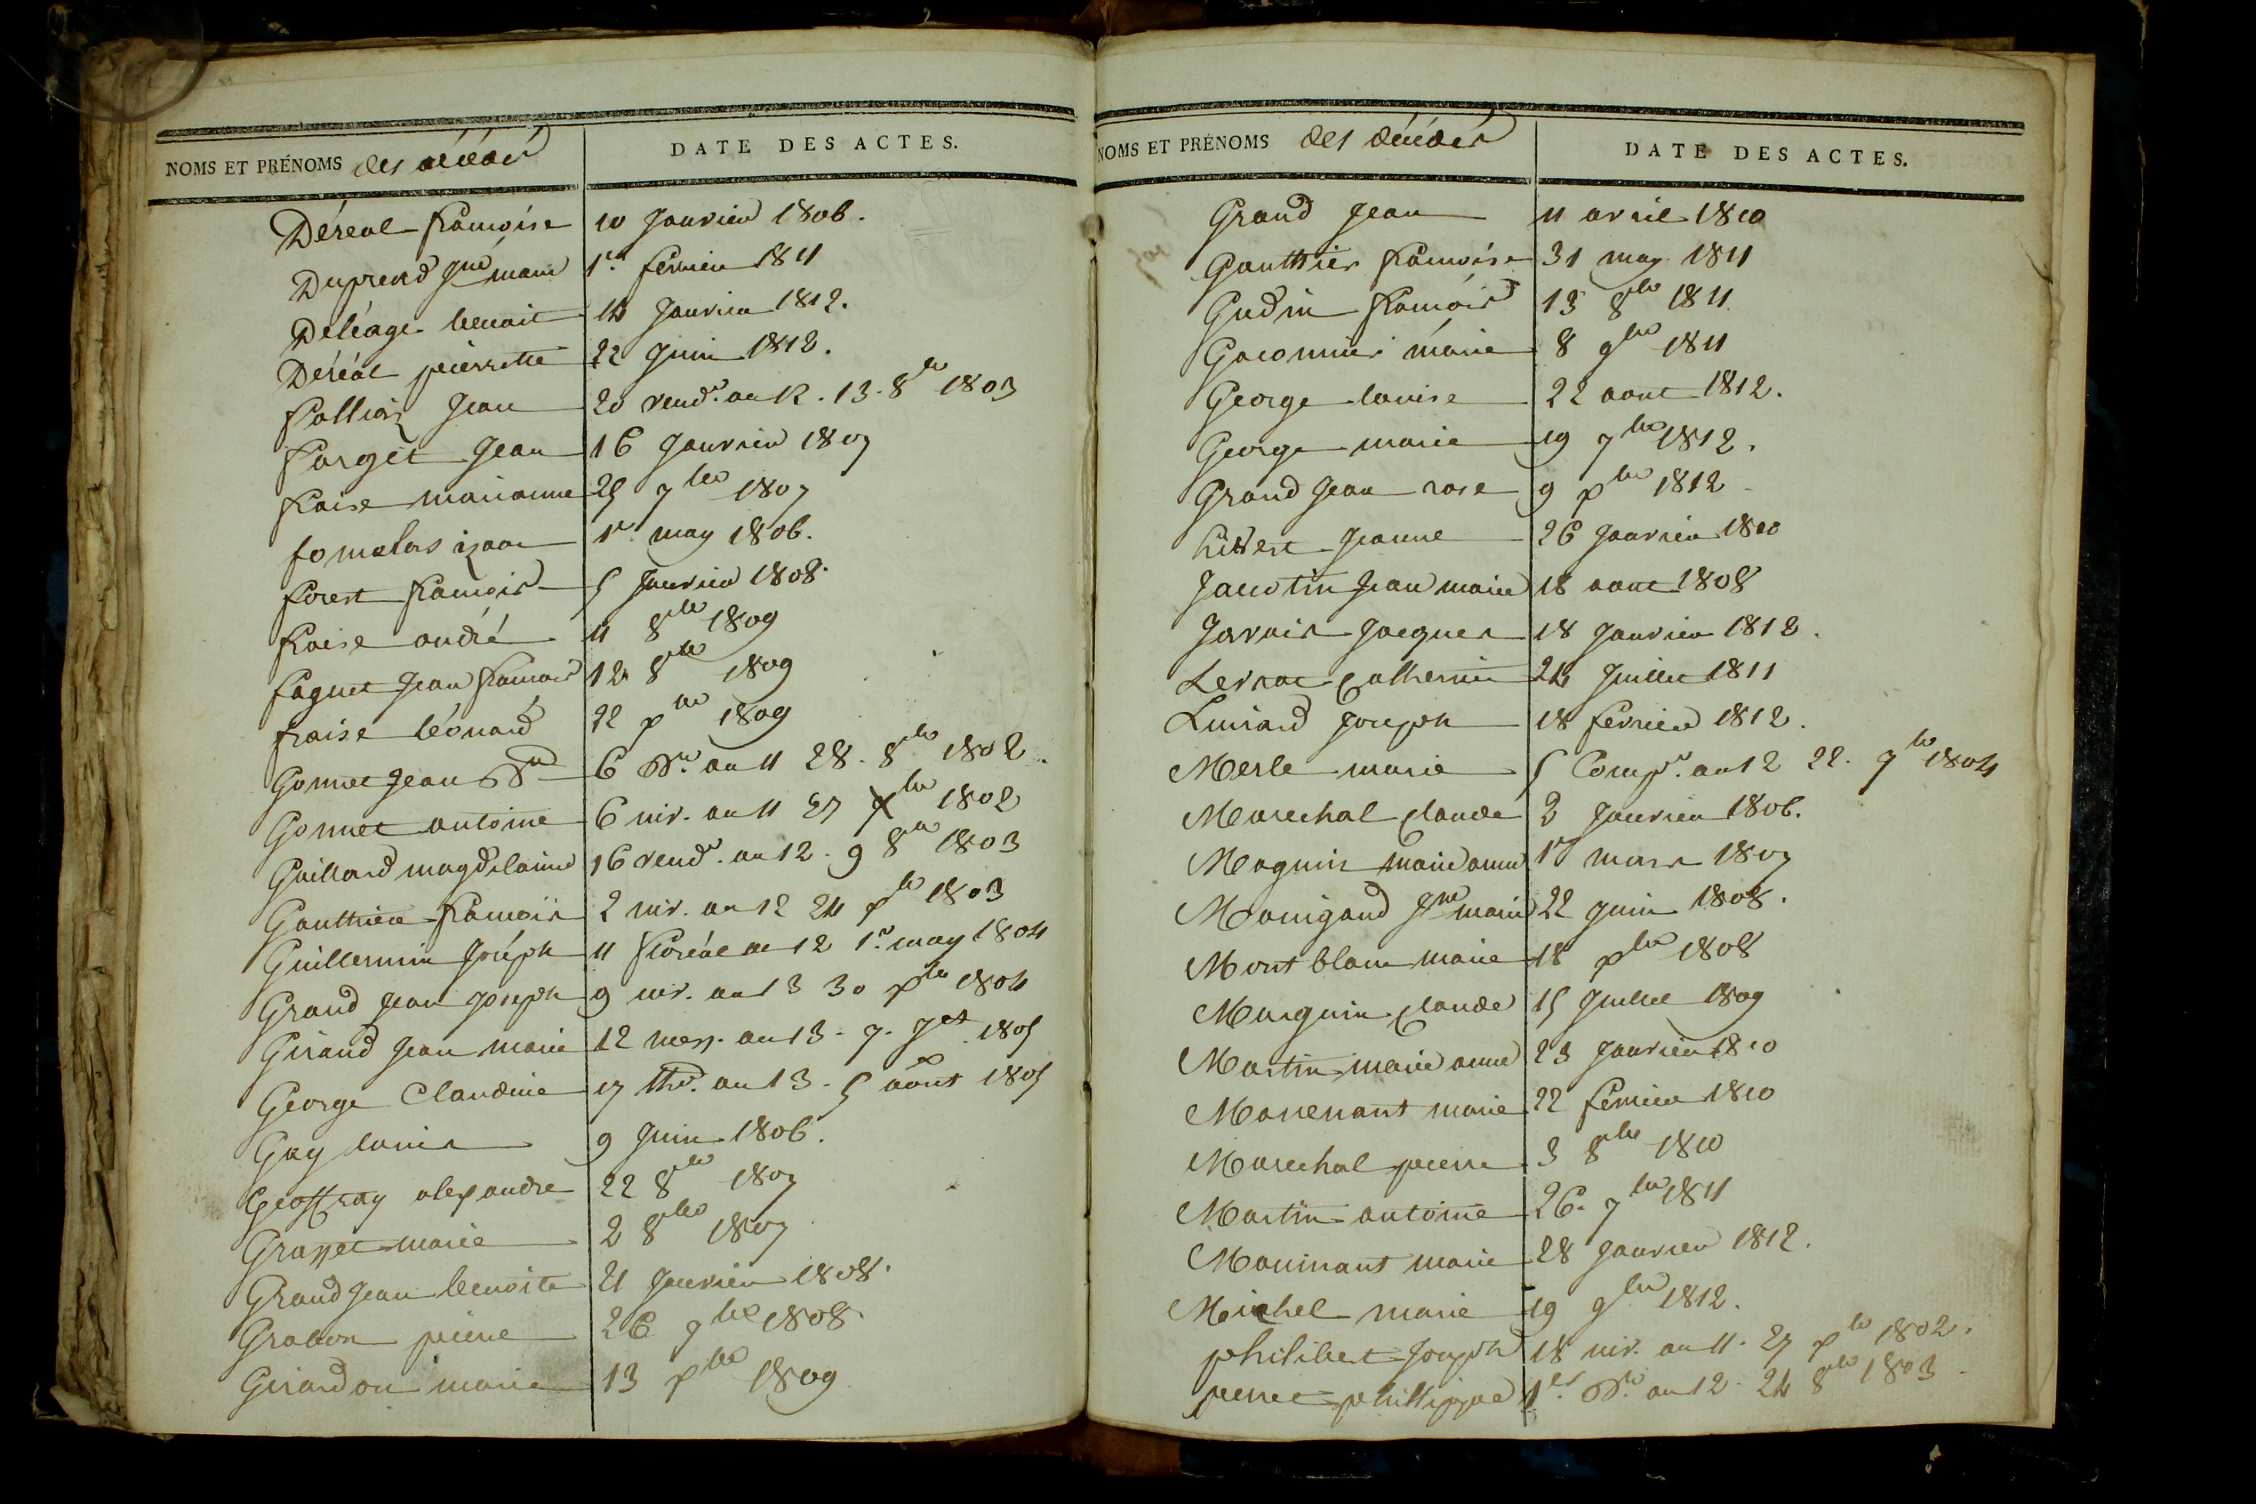 NOMS ET PRÉNOMS des décédés
DATE DES ACTES.
Déreal françoise 10 Janvier 1806.
Duprend Jne marie 1er. fevrier 1811
Deléage benoit 14 Janvier 1812.
Déréal pierrette 22 Juin 1812.
Jean 20 vendre. an 12. 13. 8bre 1803
forget Jean 16 Janvier 1807
fraise marianne 25 7bre 1807
1er. may 1806.
forest françois 5 Janvier 1808.
fraise andré 11 8bre 1809
faguet Jean françois 12 8bre 1809
fraise léonard 22 xbre 1809
Gonnet Jean Bte 6 Bre. an 11 28. 8bre 1802.
Gonnet antoine 6 niv. an 11 27 xbre 1802
Gaillard magdelaine 16 vendre. an 12. 9 8bre 1803
Gauthier françois 2 niv. an 12 24 xbre 1803
Guillermin Joséph 11 floréal an 12 1er. may 1804
Grand Jean Joseph 9 niv. an 13 30 xbre 1804
Girand Jean marie 12 mess. an 13. 7. Jet 1805
George Claudine 17 thr. an 13. 5 août 1805
Gay louis 9 Juin 1806.
Geoffray alexandre 22 8bre 1807
Grasset marie 2 8bre 1807
Grand Jean benoite 21 Janvier 1808.
pierre 26 9bre 1808.
Girardon marie 13 xbre 1809
NOMS ET PRÉNOMS des décédés
DATE DES ACTES.
Grand Jean 11 avril 1810
Gauthier françoise 31 may 1811
Gudin françois 13 8bre 1811
Gaconnier marie 8 9bre 1811
George louise 22 aout 1812.
George marie 19 7bre 1812.
Grand Jean rose 9 xbre 1812
Jeanne 26 Janvier 1810
Jacotin Jean marie 18 aout 1808
Jarvais Jacques 18 Janvier 1812.
Catherine 24 Juillet 1811
Joseph 18 fevrier 1812.
Merle marie 5 Compre. an 12 22. 7bre 1804
Marechal claude 2 Janvier 1806.
Magnin marie anne 1er mars 1807
Jne marie 22 Juin 1808.
Mont blanc marie 18 xbre 1808
Marguin claude 15 Juillet 1809
Martin marie anne 23 Janvier 1810
marie 22 fevrier 1810
Marechal pierre 3 8bre 1810
Martin antoine 26. 7bre 1811
marie 28 Janvier 1812.
Michel marie 19 9bre 1812.
philibert Joseph 18 niv. an 11. 27 xbre 1802.
perret philippe 1er. Bre an 12. 24 8bre 1803